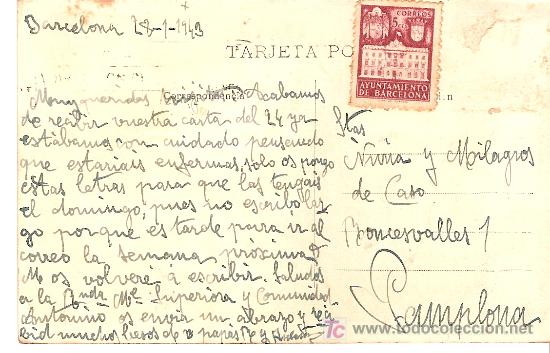 Barcelona 28-1-1943
TARJETA PO
CORREOS
5 cts
AYUNTAMIENTO
DE BARCELONA
Correspondencia
Muy queridas Acabamos
de recibir vuestra carta del 24 ya
estábamos con cuidado pensando
que estariais enfermas, solo os pongo
estas letras para que las tengais
el domingo, pues no escribo lar
go porque es tarde para ir al
correo la semana próxima
M os volveré á escribir. Saludos
a la Rndª Mᵉ Superiora y Comunidad
Antonino os envia un abrazo y re
bid muchos besos de v papás
Stas
Nuria y Milagros
de Caso
Roncesvalles 1
Pamplona
todocoleccion.net